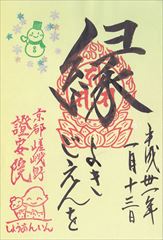 平成卅年
一月十三日
縁
よき
ごえんを
京都嵯峨野
證安院
しょうあんいん